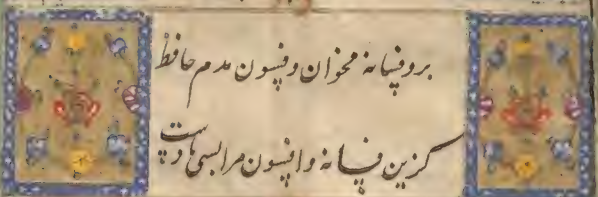 برو فسانه مخوان و فسون مدم حافظ
کزین فسانه و افسون مرا بسی یادست